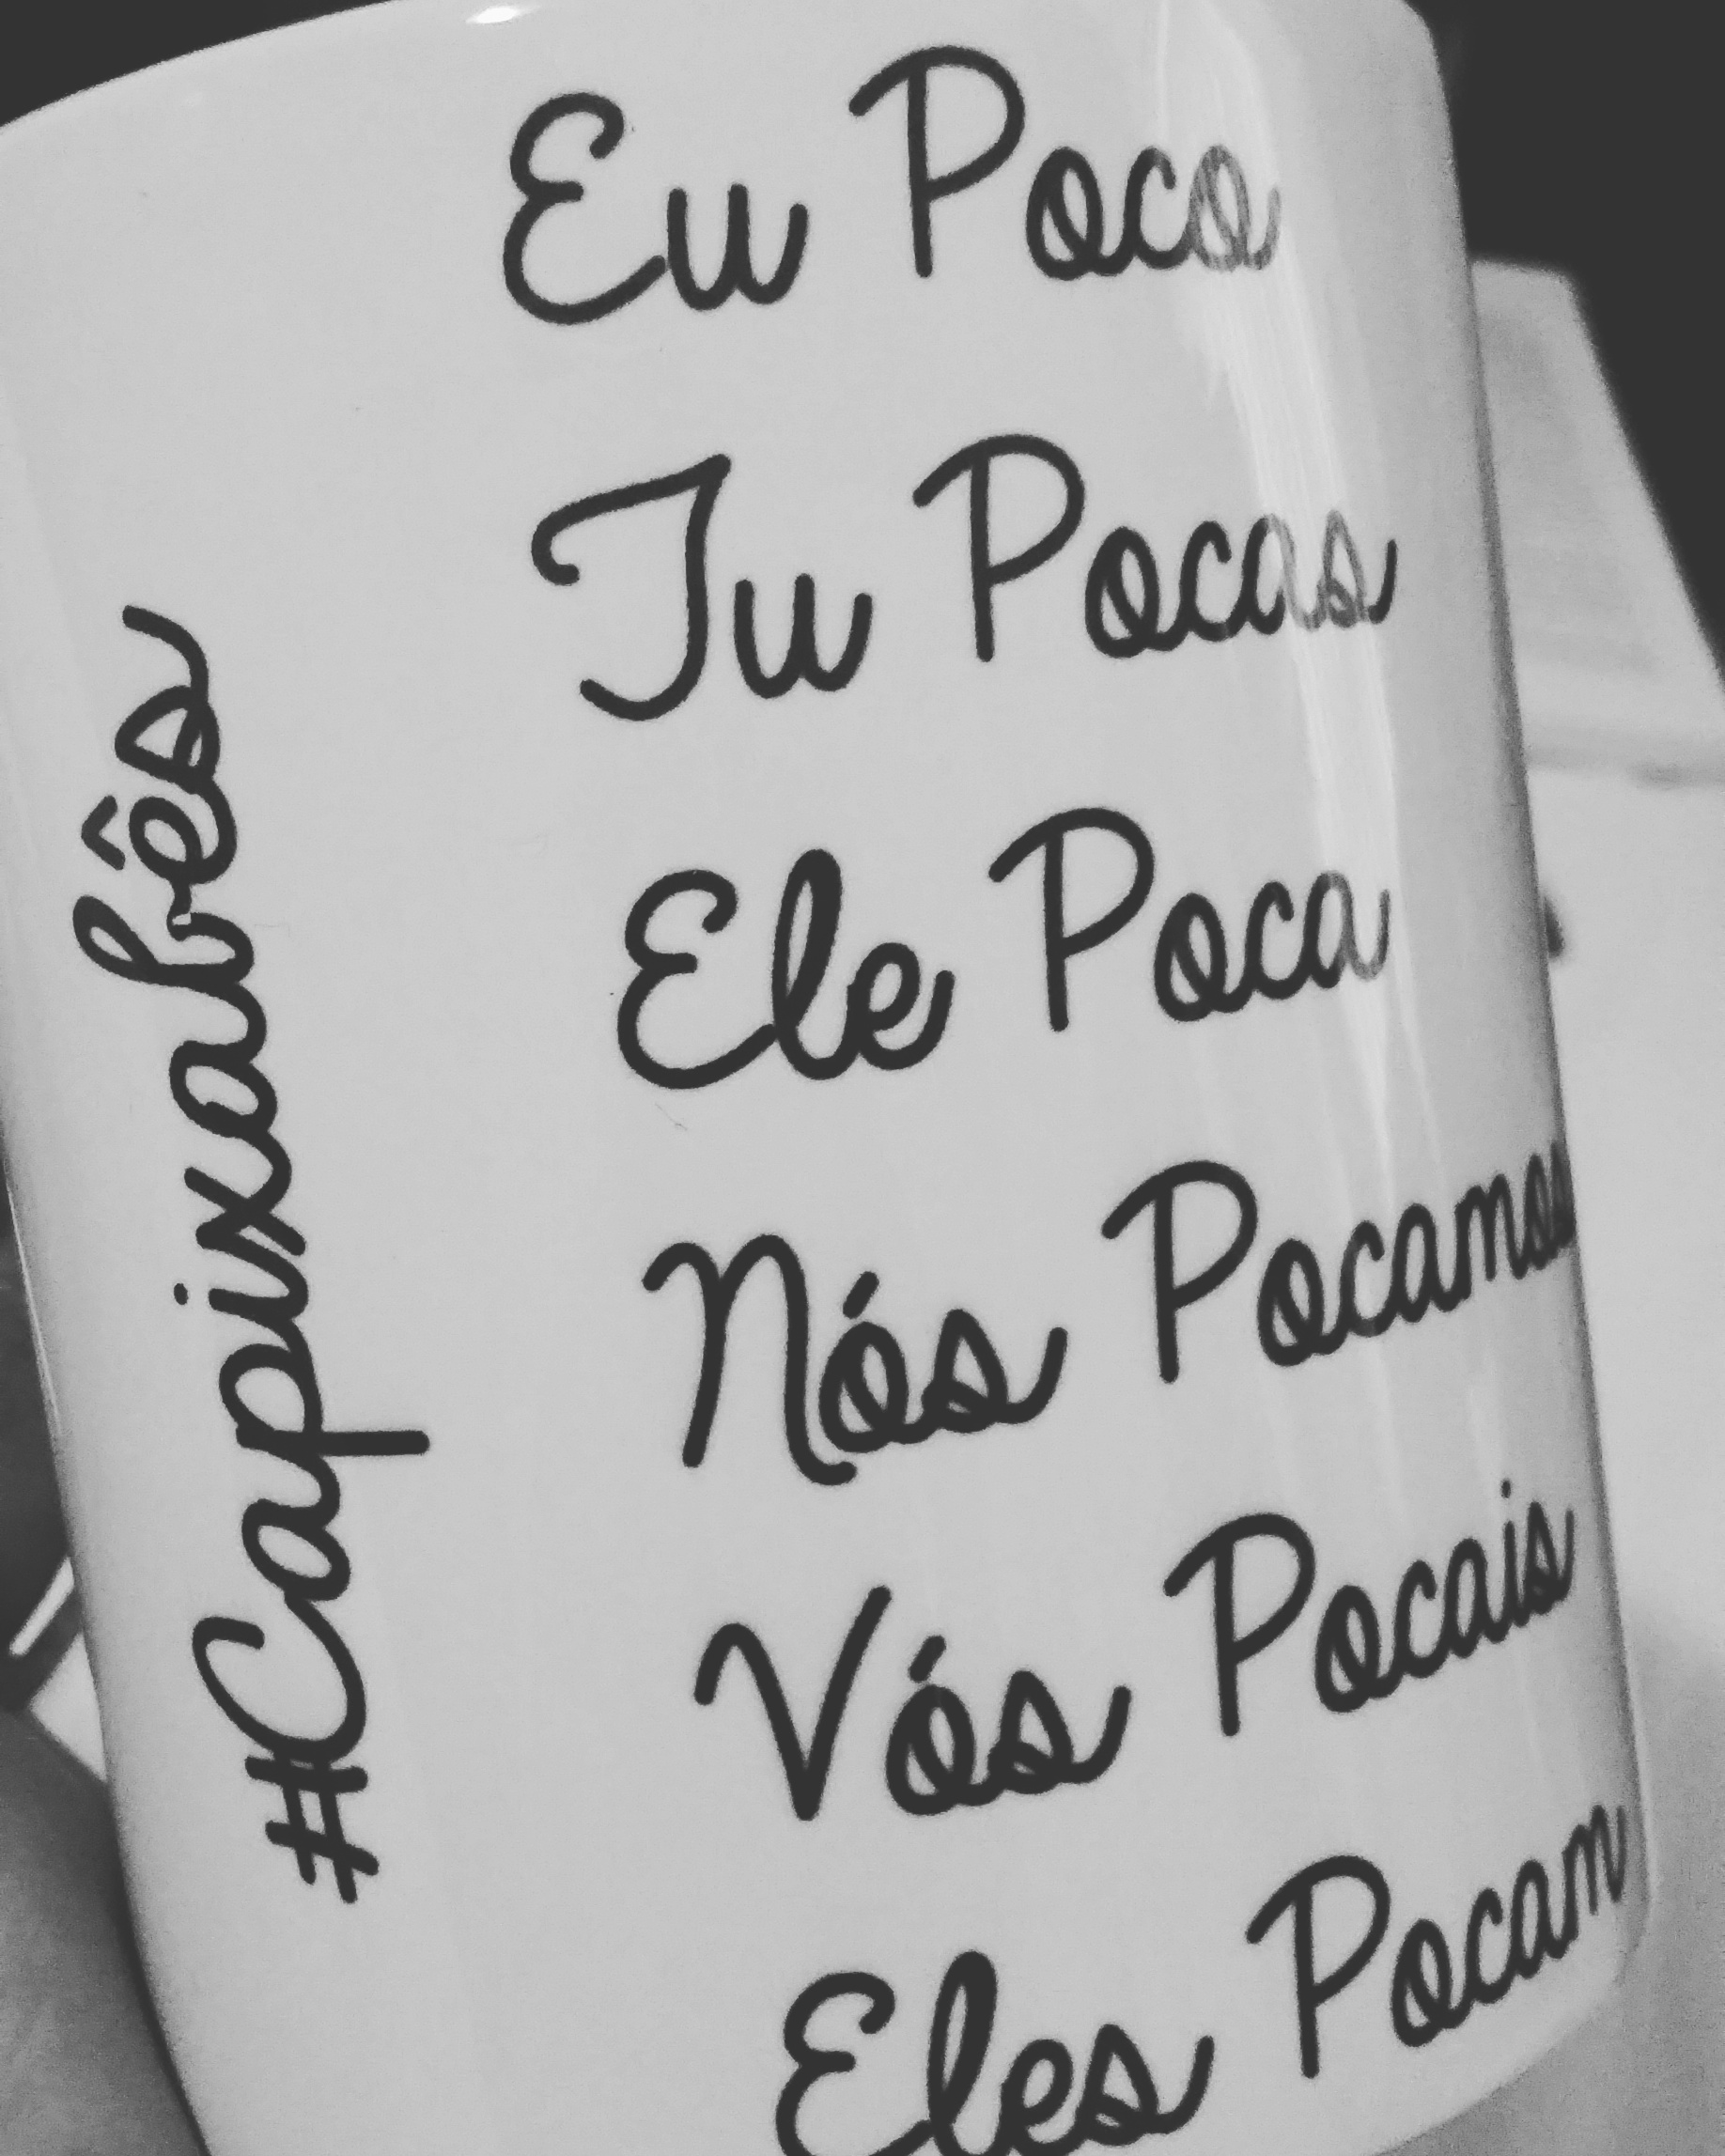 Eu Poco
Tu Pocas
Ele Poca
Nós Pocamos
Vós Pocais
Eles Pocam
#Capixabês